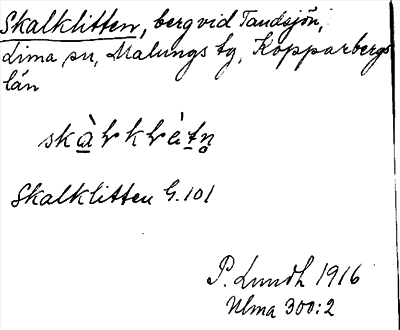 Skalklitten, berg vid Tandsjön,
Lima sn, Malungs tg, Kopparbergs
län
Skalklitten G. 101
P. Lundh 1916
Ulma 300:2